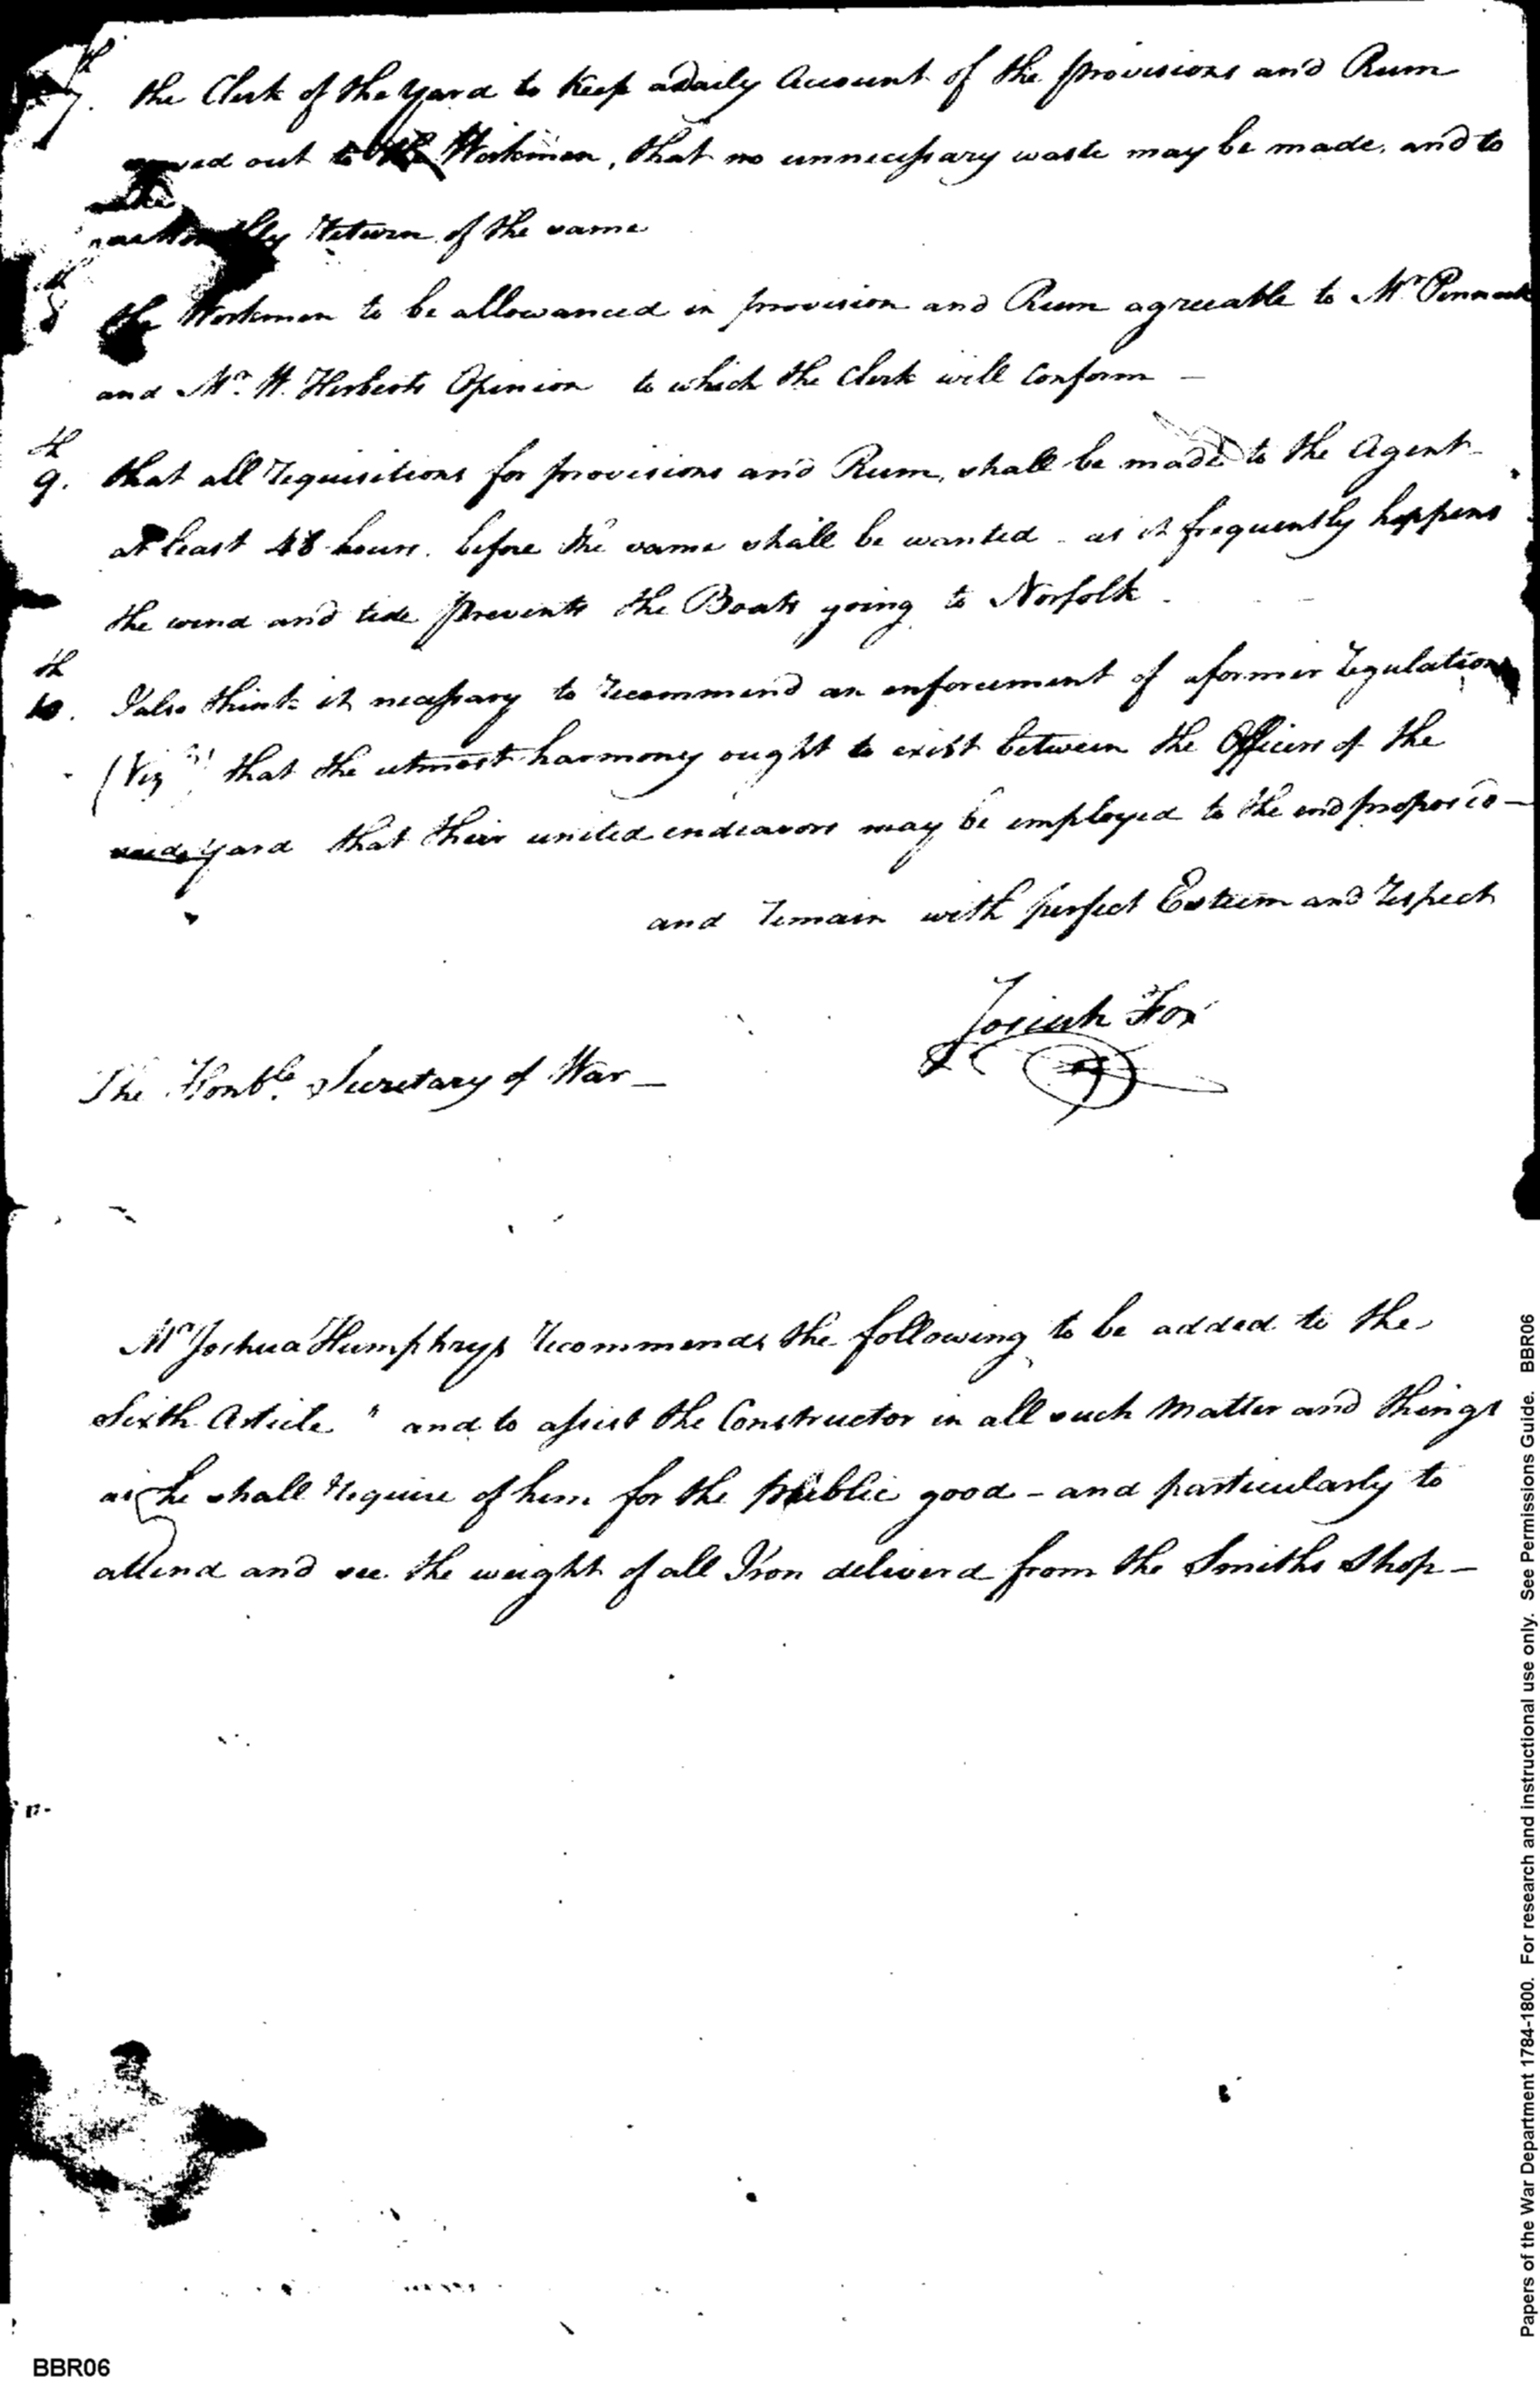 7th. the Clerk of the Yard to Keep a Daily Account of the provisions and Rum
out to the Workmen, that no unnecessary waste may be made, and to
Return of the same
8th the Workmen to be allowanced in provision and Rum agreeable to Mr. Pennock
and Mr. W. Herberts Opinion to which the Clerk will Conform —
9th. that all requisitions for provisions and Rum, shall be made to the Agent
at least 48 hours. before the same shall be wanted - as it frequently happens
the wind and tide prevents the Boats going to Norfolk -
10th. I also think it necessary to recommend an enforcement of a former regulation
(Viz) that the utmost harmony ought to exist between the Officers of the
said yard that their united endeavors may be employed to the end proposed —
and remain with perfect Esteem and respect
Josiah Fox
The Honble. Secretary of War —
Mr Joshua Humphrys recommends the following to be added to the
Sixth Article " and to assist the Constructor in all such Matter and things
as he shall require of him for the public good - and particularly to
attend and see the weight of all Iron deliverd from the Smiths Shop —
BBR06
Papers of the War Department 1784-1800. For research and instructional use only. See Permissions Guide. BBR06